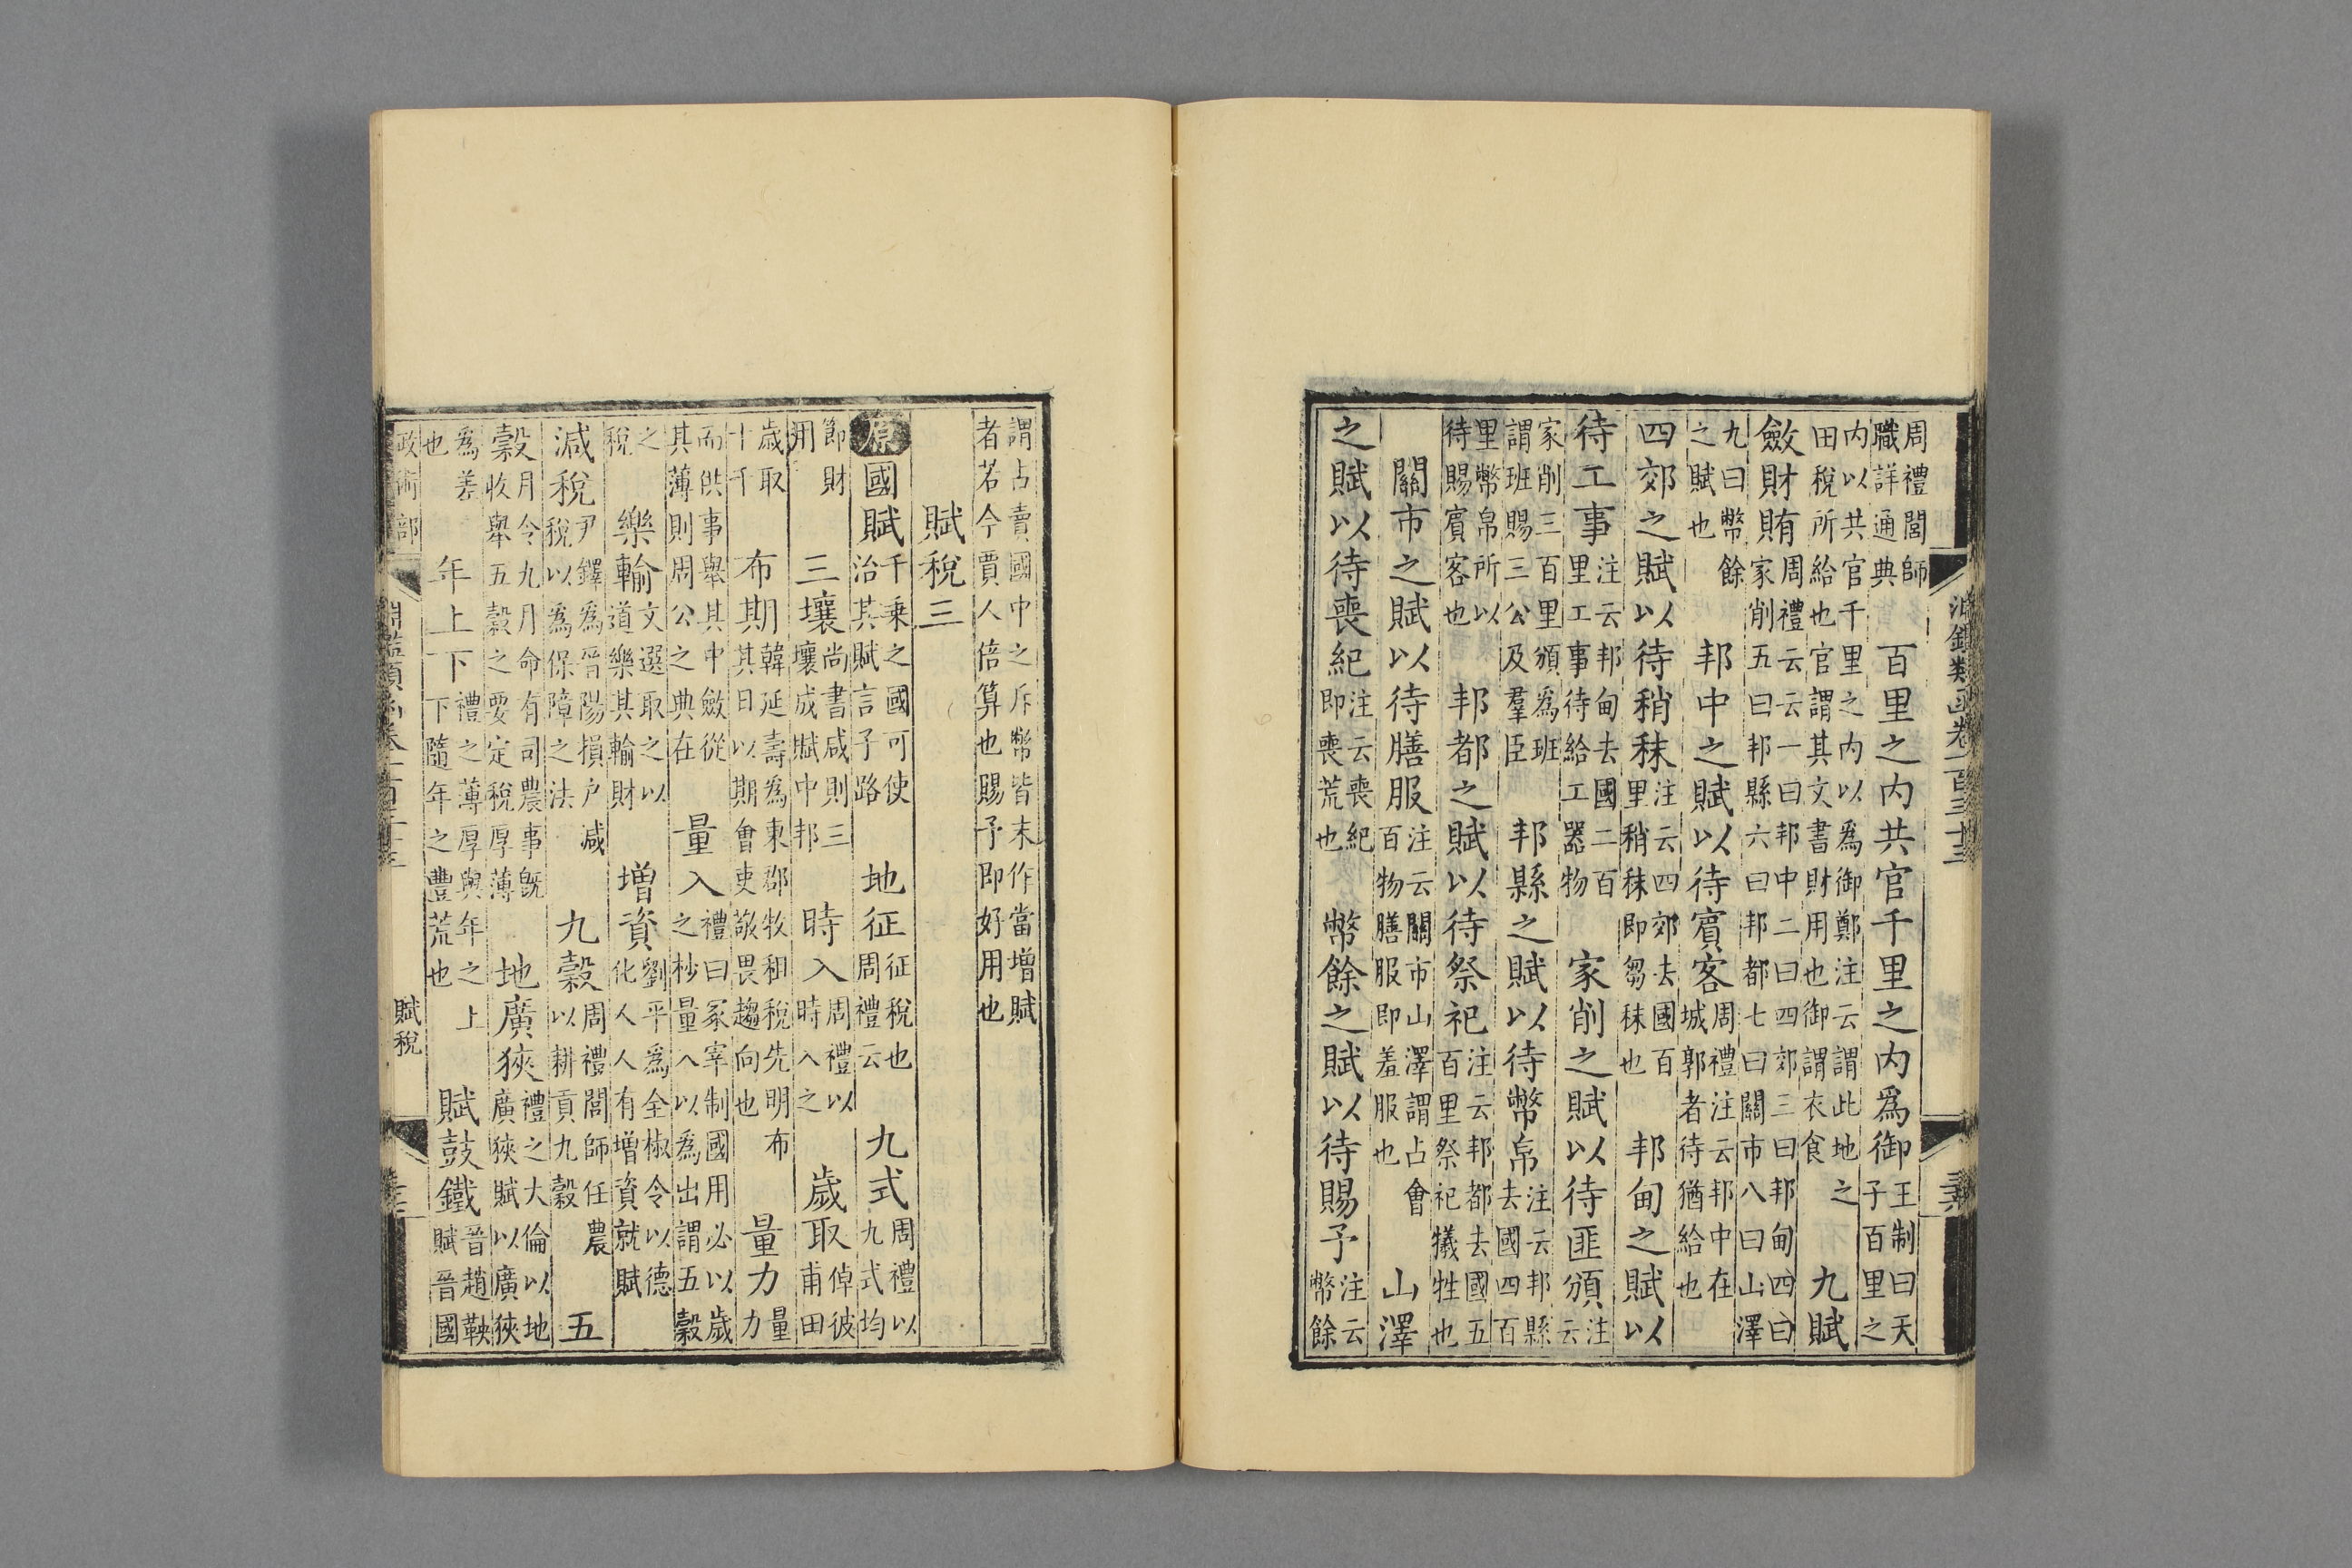 淵鑑類函卷一百三十三
周禮閭師職詳通典　百里之内共官千里之内爲御王制曰天子百里之
内以共官千里之内以爲御鄭注云謂此地之田稅所給也官謂其文書財用也御謂衣食　九賦
斂財賄周禮云云一曰邦中二曰四郊三曰邦甸四曰家削五曰邦縣六曰邦都七曰關市八曰山澤
九曰幣餘之賦也　邦中之賦以待賓客周禮注云邦中在城郭者待猶給也
四郊之賦以待稍秣注云四郊去國百里稍秣即芻秣也　邦甸之賦以
待工事注云邦甸去國二百里工事待給工器物　家削之賦以待匪頒注云
家削三百里頒爲班謂班賜三公及羣臣　邦縣之賦以待幣帛注云邦縣去國四百
里幣帛所以待賜賓客也　邦都之賦以待祭祀注云邦都去國五百里祭祀犧牲也
關市之賦以待膳服注云關市山澤謂占會百物膳服即羞服也　山澤
之賦以待喪紀注云喪紀即喪荒也　幣餘之賦以待賜予注云幣餘
謂占賣國中之斥幣皆末作當增賦者若今賈人倍算也賜予即好用也
賦稅三
原國賦千乘之國可使治其賦言子路　地征征稅也周禮云　九式周禮以九式均
節財用　三壤尚書咸則三壤成賦中邦　時入周禮以時入之　歲取倬彼甫田
歲取十千　布期韓延壽為東郡牧租稅先明布其日以期會吏敬畏趨向也　量力量力
而供事舉其中斂從其薄則周公之典在　量入禮曰冢宰制國用必以歲之杪量入以為出謂五穀
之稅　樂輸文選取之以道樂其輸財　增資劉平爲全椒令以德化人人有增資就賦
減稅尹鐸爲晉陽損戶減稅以為保障之法　九穀周禮閭師任農以耕貢九穀　五
穀月令九月命有司農事旣收舉五穀之要定稅厚薄　地廣狹禮之大倫以地廣狹賦以廣狹
爲差也　年上下禮之薄厚與年之上下隨年之豐荒也　賦鼓鐵晉趙鞅賦晉國
政術部　淵鑑類函卷一百三十三　賦稅